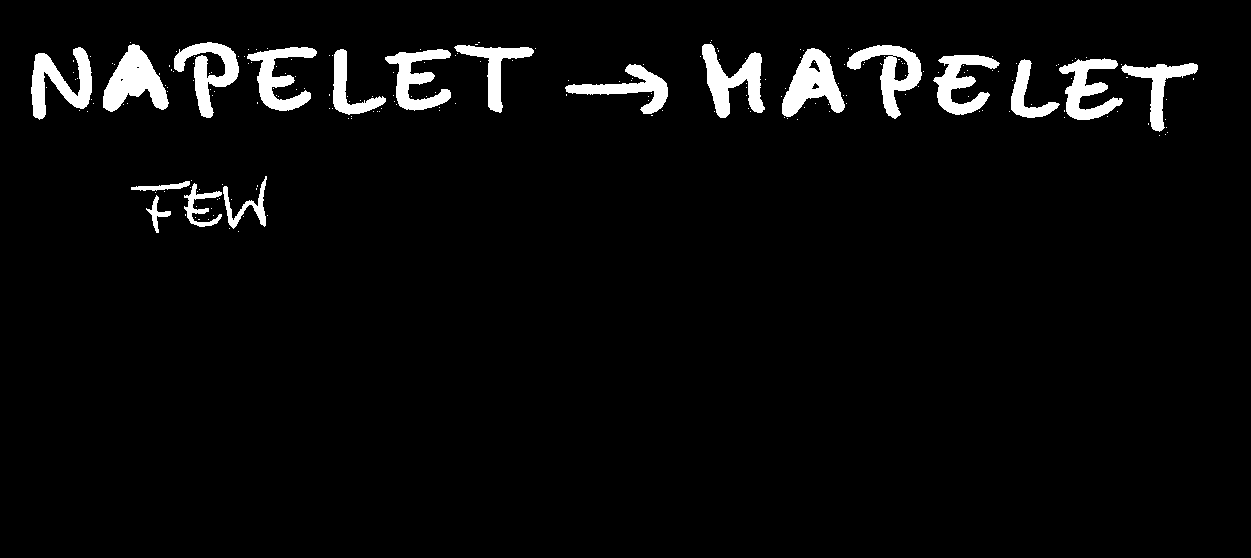 NAPELET → MAPELET
FEW